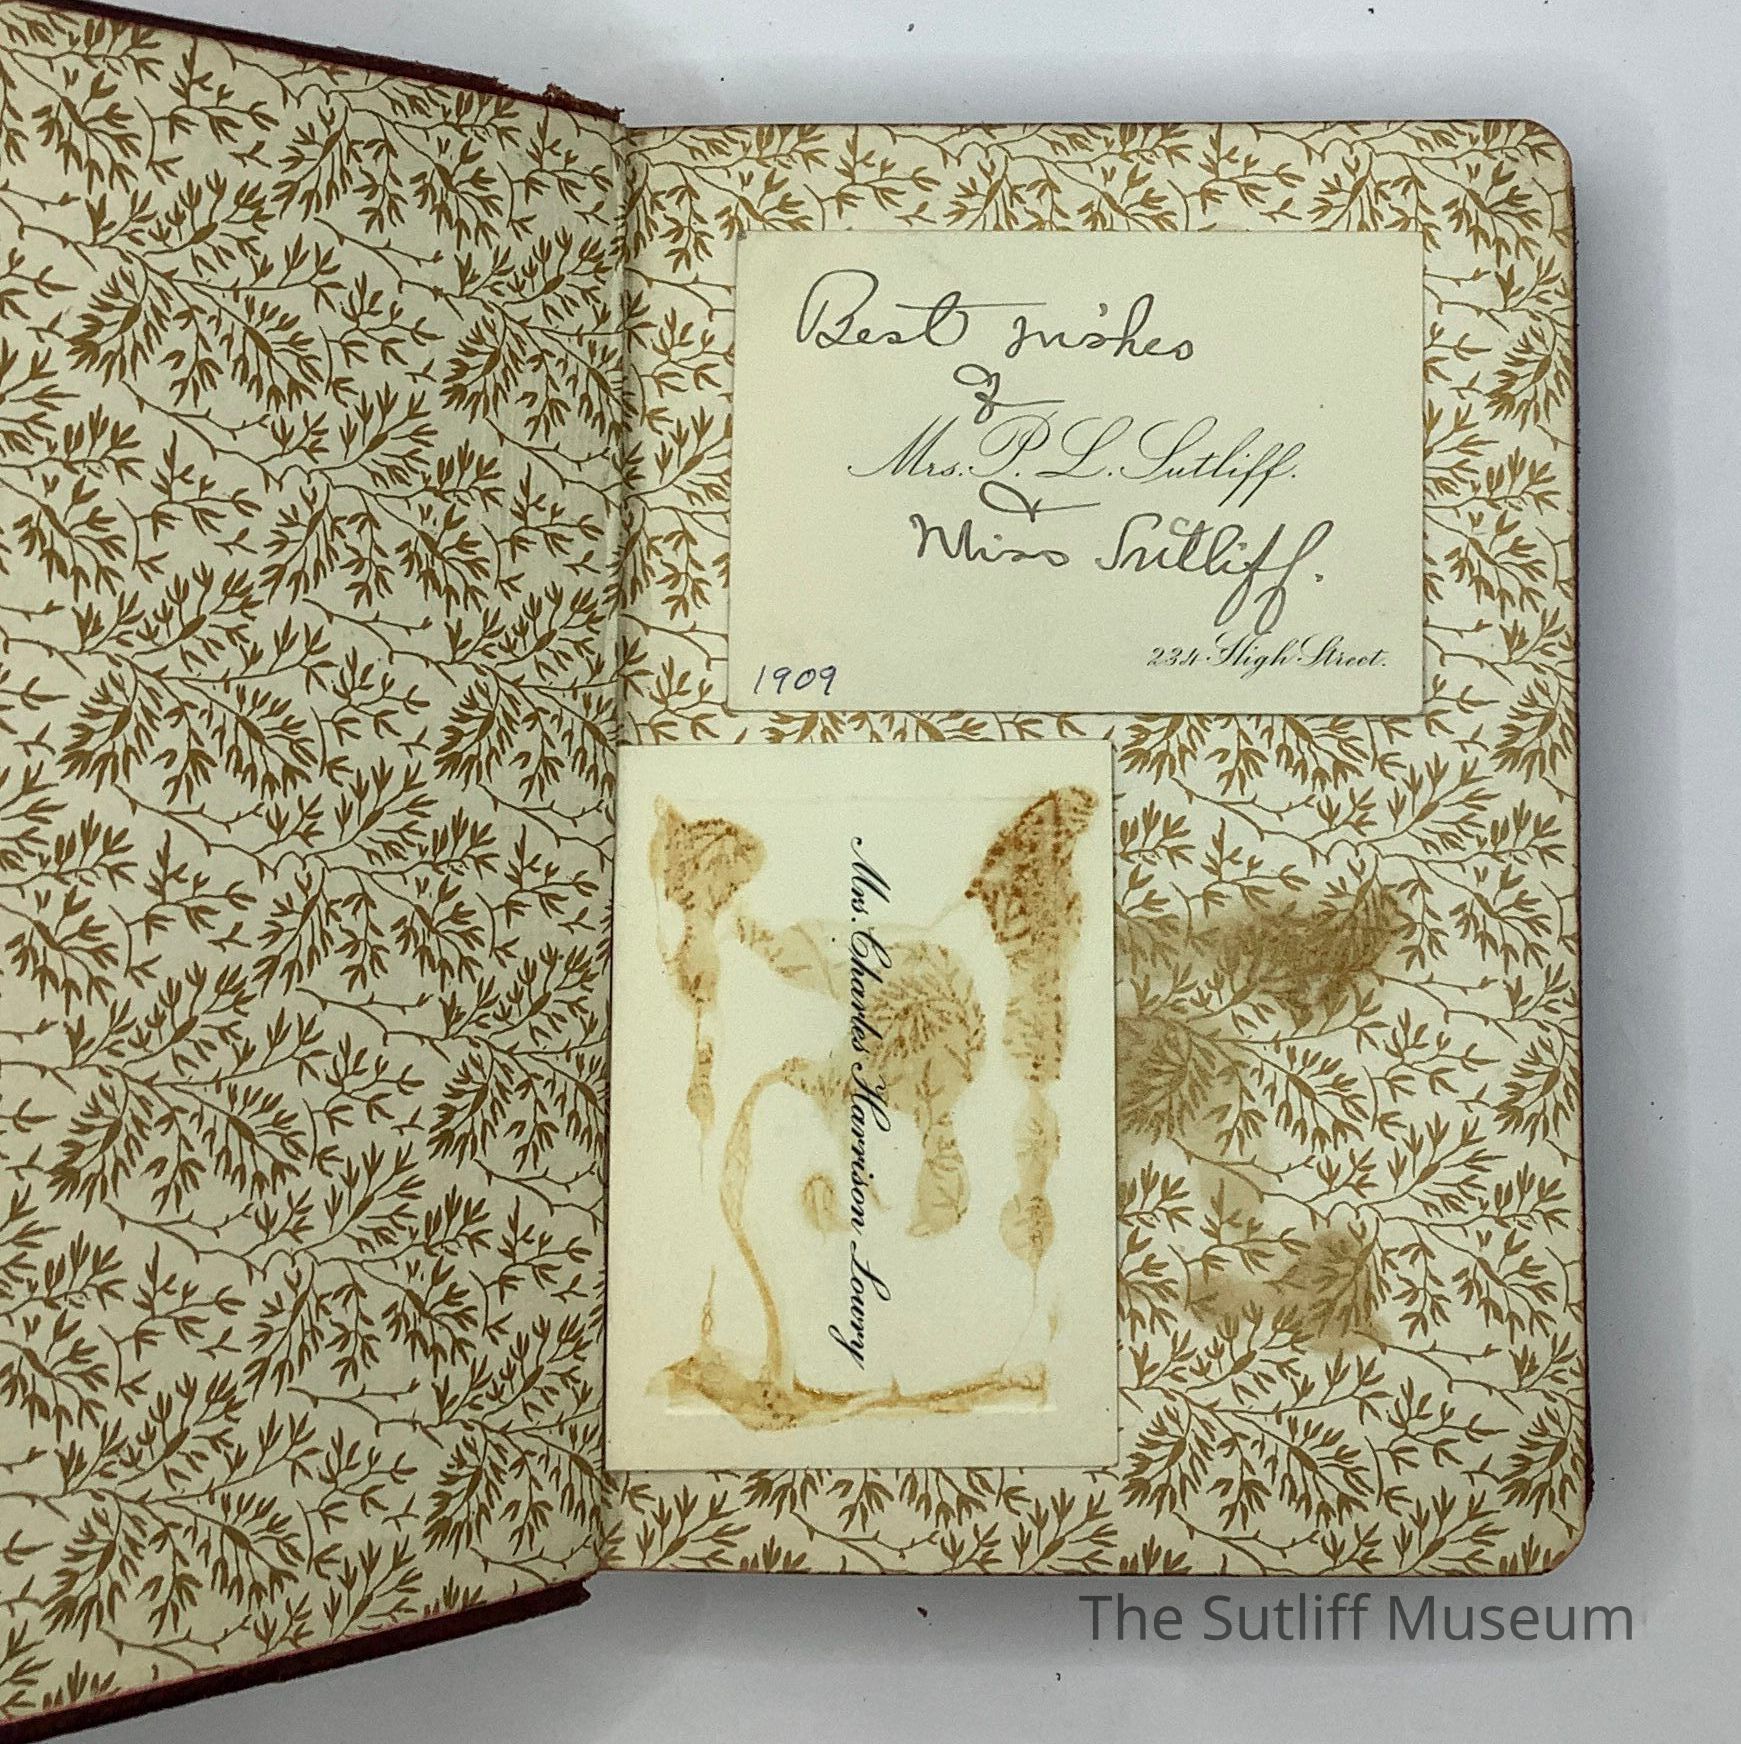 Best wishes
of
Mrs. P. L. Sutliff.
&
Miss Sutliff.
234 High Street.
1909
Mrs. Charles Harrison Lowry
The Sutliff Museum